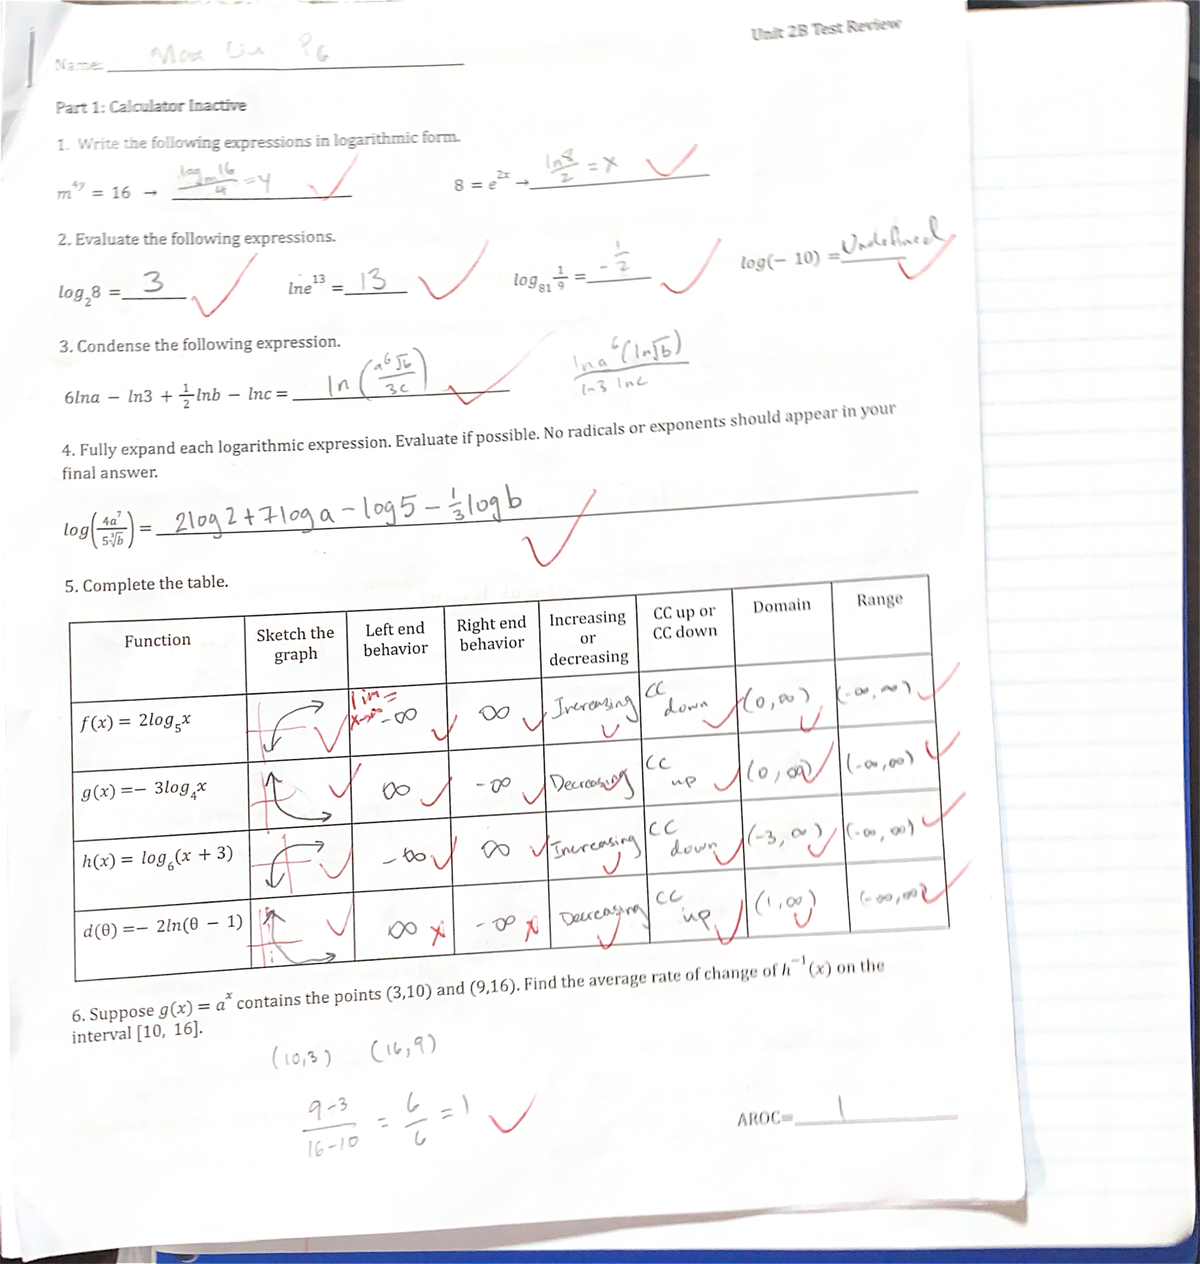 Unit 2B Test Review
Name: Max Liu P6
Part 1: Calculator Inactive
1. Write the following expressions in logarithmic form.
m^{4y} = 16 → \frac{log_m 16}{4} = y
8 = e^{2x} → \frac{ln8}{2} = x
2. Evaluate the following expressions.
log_2 8 = 3
lne^{13} = 13
log_{81} \frac{1}{9} = -\frac{1}{2}
log(− 10) = Undefined
3. Condense the following expression.
6lna − ln3 + \frac{1}{2}lnb − lnc = ln(\frac{a^6 √b}{3c})
\frac{lna^6(ln√b)}{ln3 lnc}
4. Fully expand each logarithmic expression. Evaluate if possible. No radicals or exponents should appear in your
final answer.
log(\frac{4a^7}{5∛b}) = 2log2+7loga-log5-\frac{1}{3}logb
5. Complete the table.
Function
Sketch the graph
Left end behavior
Right end behavior
Increasing or decreasing
CC up or CC down
Domain
Range
f(x) = 2log_5 x
lim =
x→∞
-∞
∞
Increasing
CC down
(0,∞)
(-∞,∞)
g(x) =− 3log_4 x
∞
-∞
Decreasing
CC up
(0,∞)
(-∞,∞)
h(x) = log_6(x + 3)
-∞
∞
Increasing
CC down
(-3,∞)
(-∞,∞)
d(θ) =− 2ln(θ − 1)
∞
-∞
Decreasing
CC up
(1,∞)
(-∞,∞)
6. Suppose g(x) = a^x contains the points (3,10) and (9,16). Find the average rate of change of h^{-1}(x) on the
interval [10, 16].
(10,3) (16,9)
\frac{9-3}{16-10} = \frac{6}{6} = 1
AROC= 1